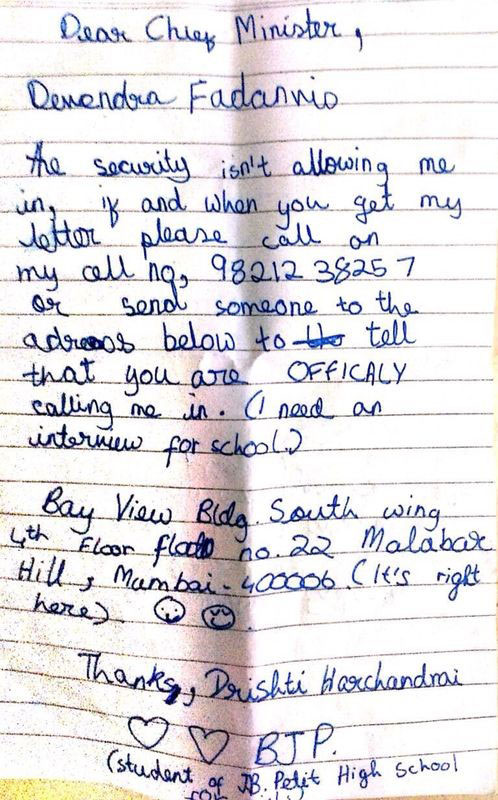 Dear Chief Minister,
Devendra Fadannio
the security isn't allowing me
in, if and when you get my
letter please call on
my cell no, 98212 38257
or send someone to the
below to tell
that you are OFFICALY
calling me in. (I need an
interview for school.)
Bay View Bldg. South wing
4th Floor no. 22 Malabar
Hill, Mumbai - 400006. (It's right
here)
Thanks, Drishti Harchandrai
BJP.
(student of J.B. Petit High School